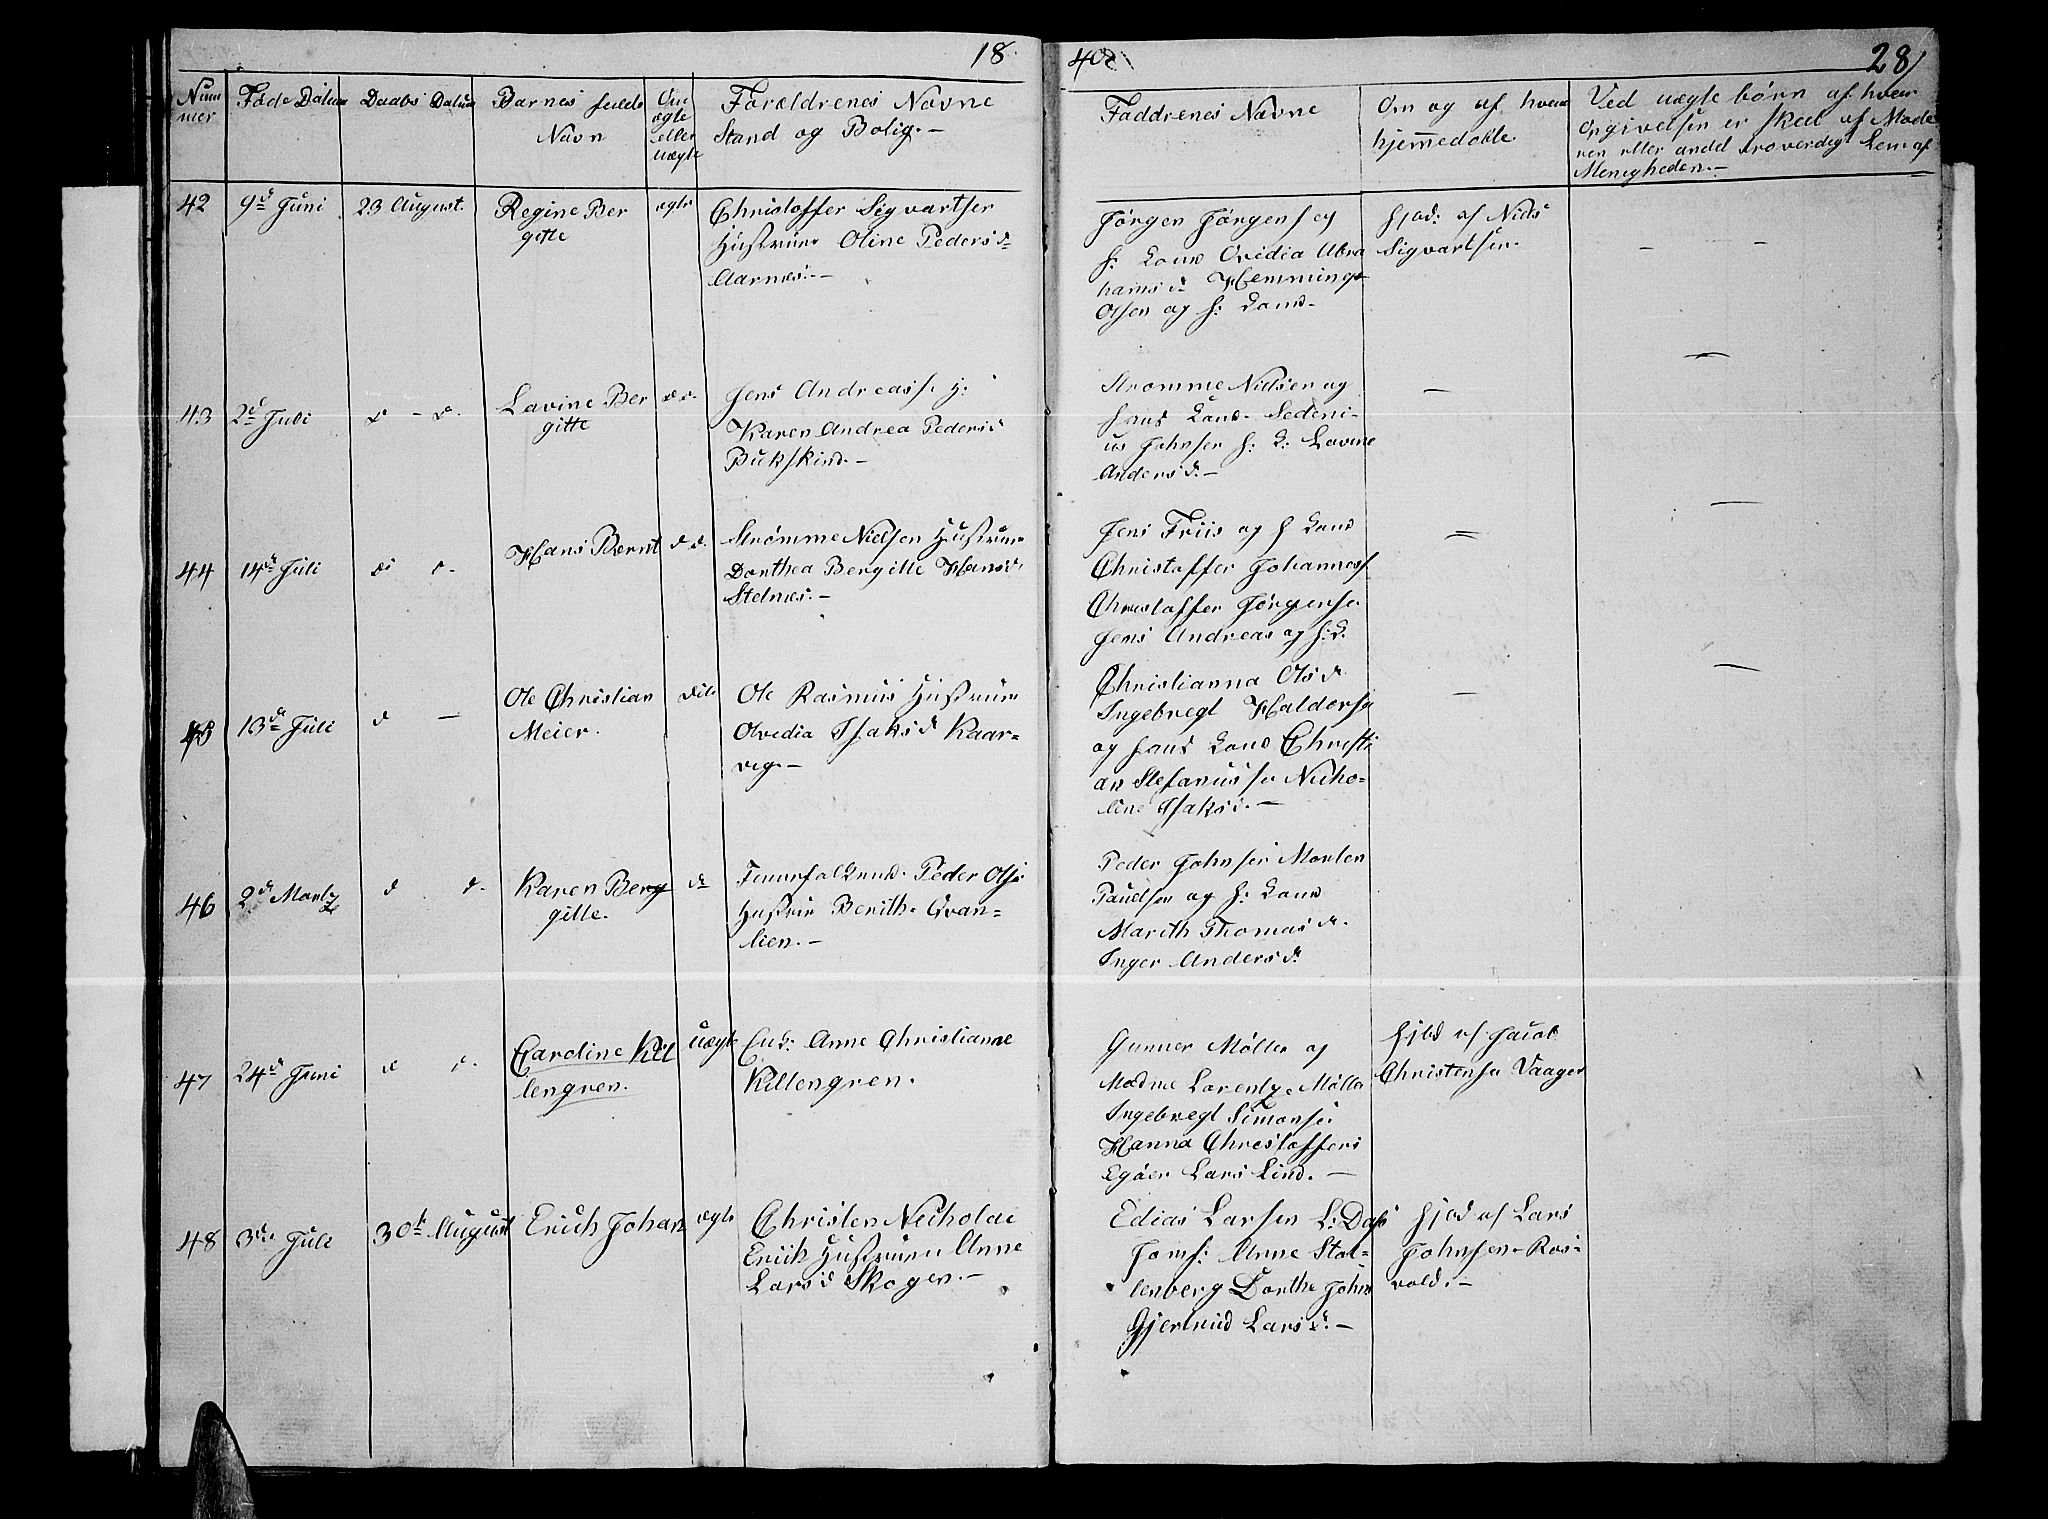 18
40
28
Num
mer
Føde Datum
Daabs Datum
Barnes fulde
Navn
Om
ægte
eller
uægte
Forældrenes Navne
Stand og Bolig.-
Faddrenes Navne
Om og af hvem
hjemmedøbte.
Ved uægte børn af hvem
Angivelsen er skeet af Mode
ren eller andet troverdigt Lem af
Menigheden.-
42
9d Juni
23 August.
Regine Ber
gitte
ægte
Christoffer Sigvartsen
Hustrue Oline Pedersd
Aarnæs.-
Jørgen Jørgens og
h: Kone Ovidia Abra
hamsd Hemming
Olsen og h: Kone.
hjod: af Niels
Sigvartsen.
43
2d Juli
d - d.
Lavine Ber
gitte
do.
Jens Andreass. H:
Karen Andrea Pedersd
Bukskind.-
Strømme Nielsen og
hans Kone. Sedeni-
us Johnsen h: K: Lavine
Andersd.-
44
14de Juli
d d.
Hans Bernt
d d.
Strømme Nielsen Hustrue
Dorthea Bergitte Hansd.
Stelnæs.-
Jens Friis og h Kone
Christoffer Johanness.
Christoffer Jørgense
Jens Andreas og h: K.
45
13de Juli
d -
Ole Christian
Meier.
dito
Ole Rasmus Hustrue
Olvedia Isaksd Kaar-
vig.-
Christianna Olsd.
Ingebregt Haldorse
og hans Kone Christi
an Stefanusse Nicho-
line Isaksd.-
46
2de Martz
d d.
Karen Berg
gitte.
d
Peder Ols.
Hustrue Berith. Qvan-
lien.-
Peder Johnsen Morten
Paulsen og h: Kone
Marith Thomasd.
Inger Andersd.
47
24d Juni
d d.
Caroline Kil
lengren.
uægte
Enk: Anne Christianne
Killengren.
Gunner Møller og
Madme Lorentze Møller
Ingebregt Simonse
Hanna Christoffers
Lars Lind.-
hjod af Jacob
Christense Vaagen
48
3de Juli
30te August
Erich Johan
ægte
Christen Nicholai
Erich Hustruen Anne
Larsd Skogen.-
Edias Larsen L: Dass
Jomf: Anne Stol-
lenberg Dorthe Johns
Gjertrud Larsd.-
hjod af Lars
Johnsen Ros-
vold.-